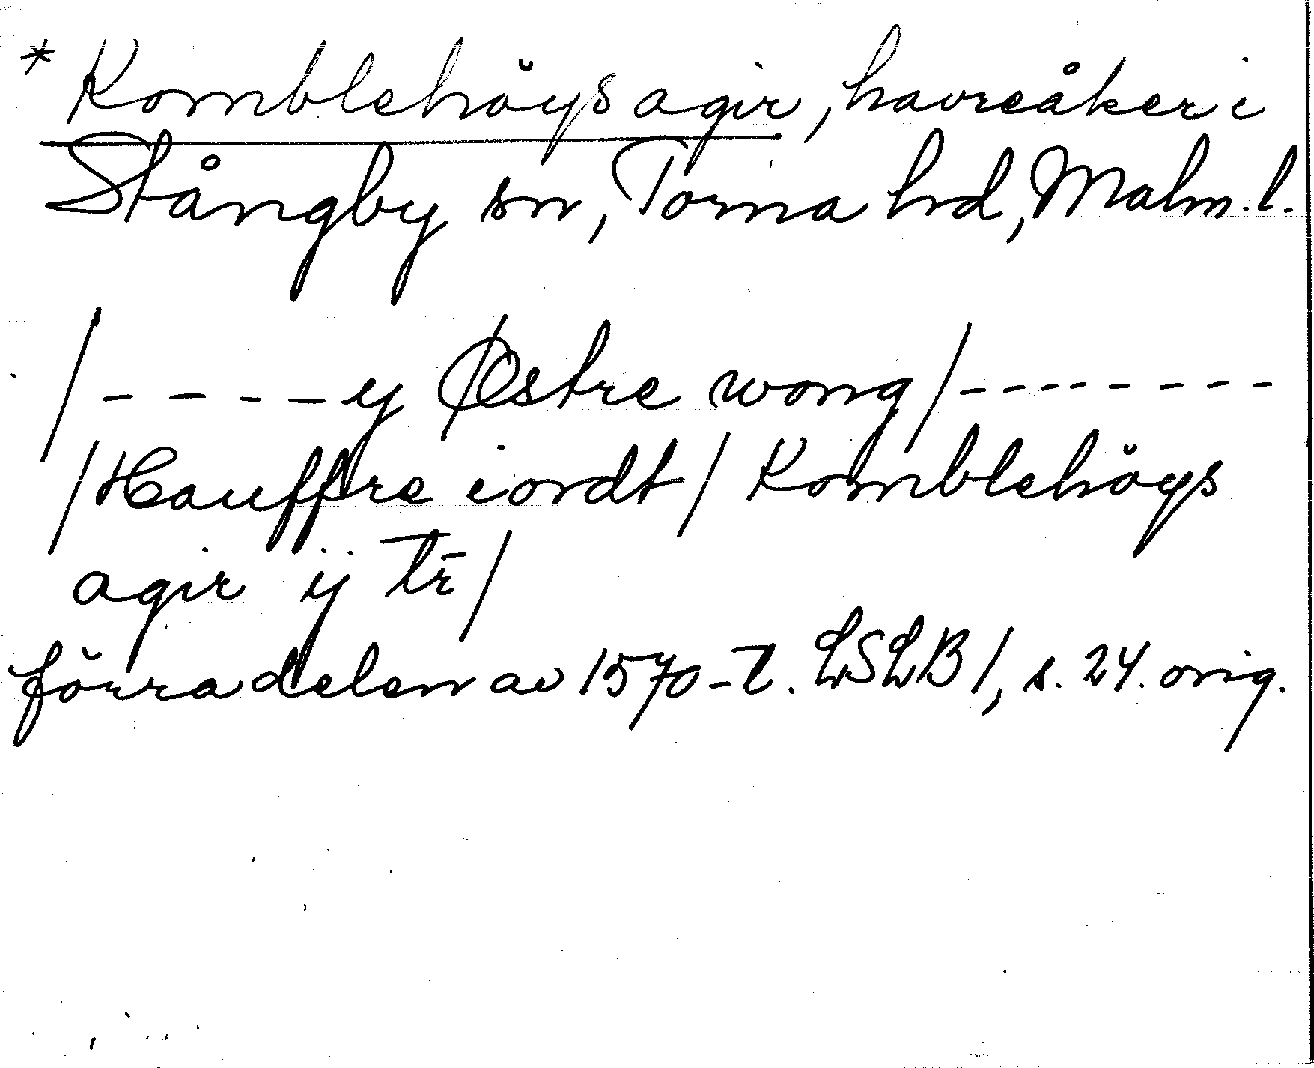 * Komblehöys agir, havreåker i
Stångby sn, Torna hd, Malm. l.
/ - - - - y Østre wong / - - - - - - - -
/ Hauffre iordt / Komblehöys
agir ij tr̄ /
förra delen av 1570-t. LSLB 1, s. 24. orig.